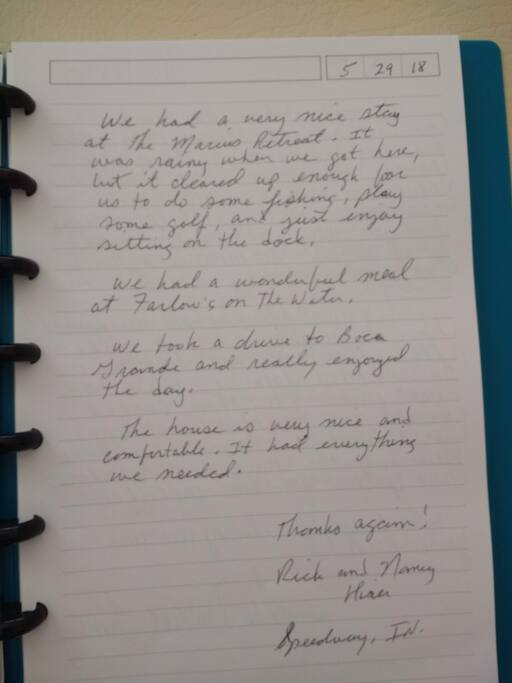 5 29 18
We had a very nice stay
at the Marius Retreat. It
was rainy when we got here,
but it cleared up enough for
us to do some fishing, play
some golf, and just enjoy
sitting on the dock.
We had a wonderful meal
at Farlow's on The Water.
We took a drive to Boca
Grande and really enjoyed
the day.
The house is very nice and
comfortable. It had everything
we needed.
Thanks again!
Rick and Nancy
Speedway, IN.